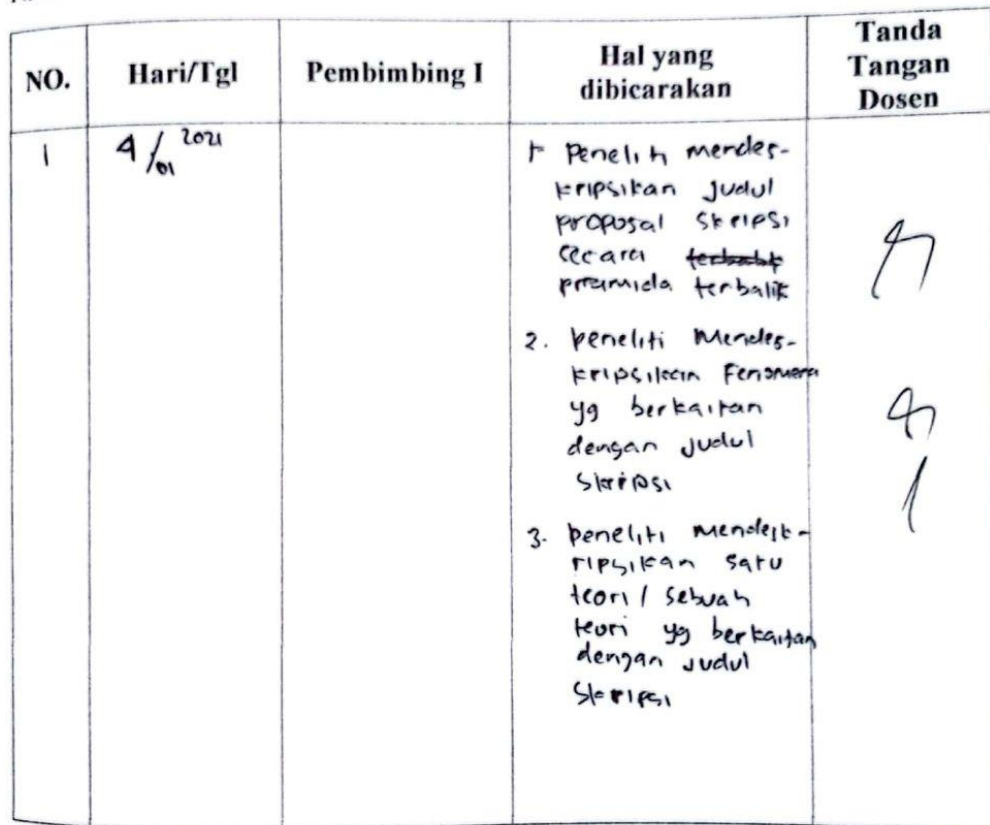 NO.
Hari/Tgl
Pembimbing I
Hal yang
dibicarakan
Tanda
Tangan
Dosen
1
4/01 2021
1. Peneliti mendes-
kripsikan judul
proposal skripsi
secara terbalik
piramida terbalik
2. peneliti Mendes-
kripsikan Fenomena
yg berkaitan
dengan judul
Skripsi
3. peneliti mendesk-
ripsikan satu
teori / sebuah
teori yg berkaitan
dengan judul
Skripsi